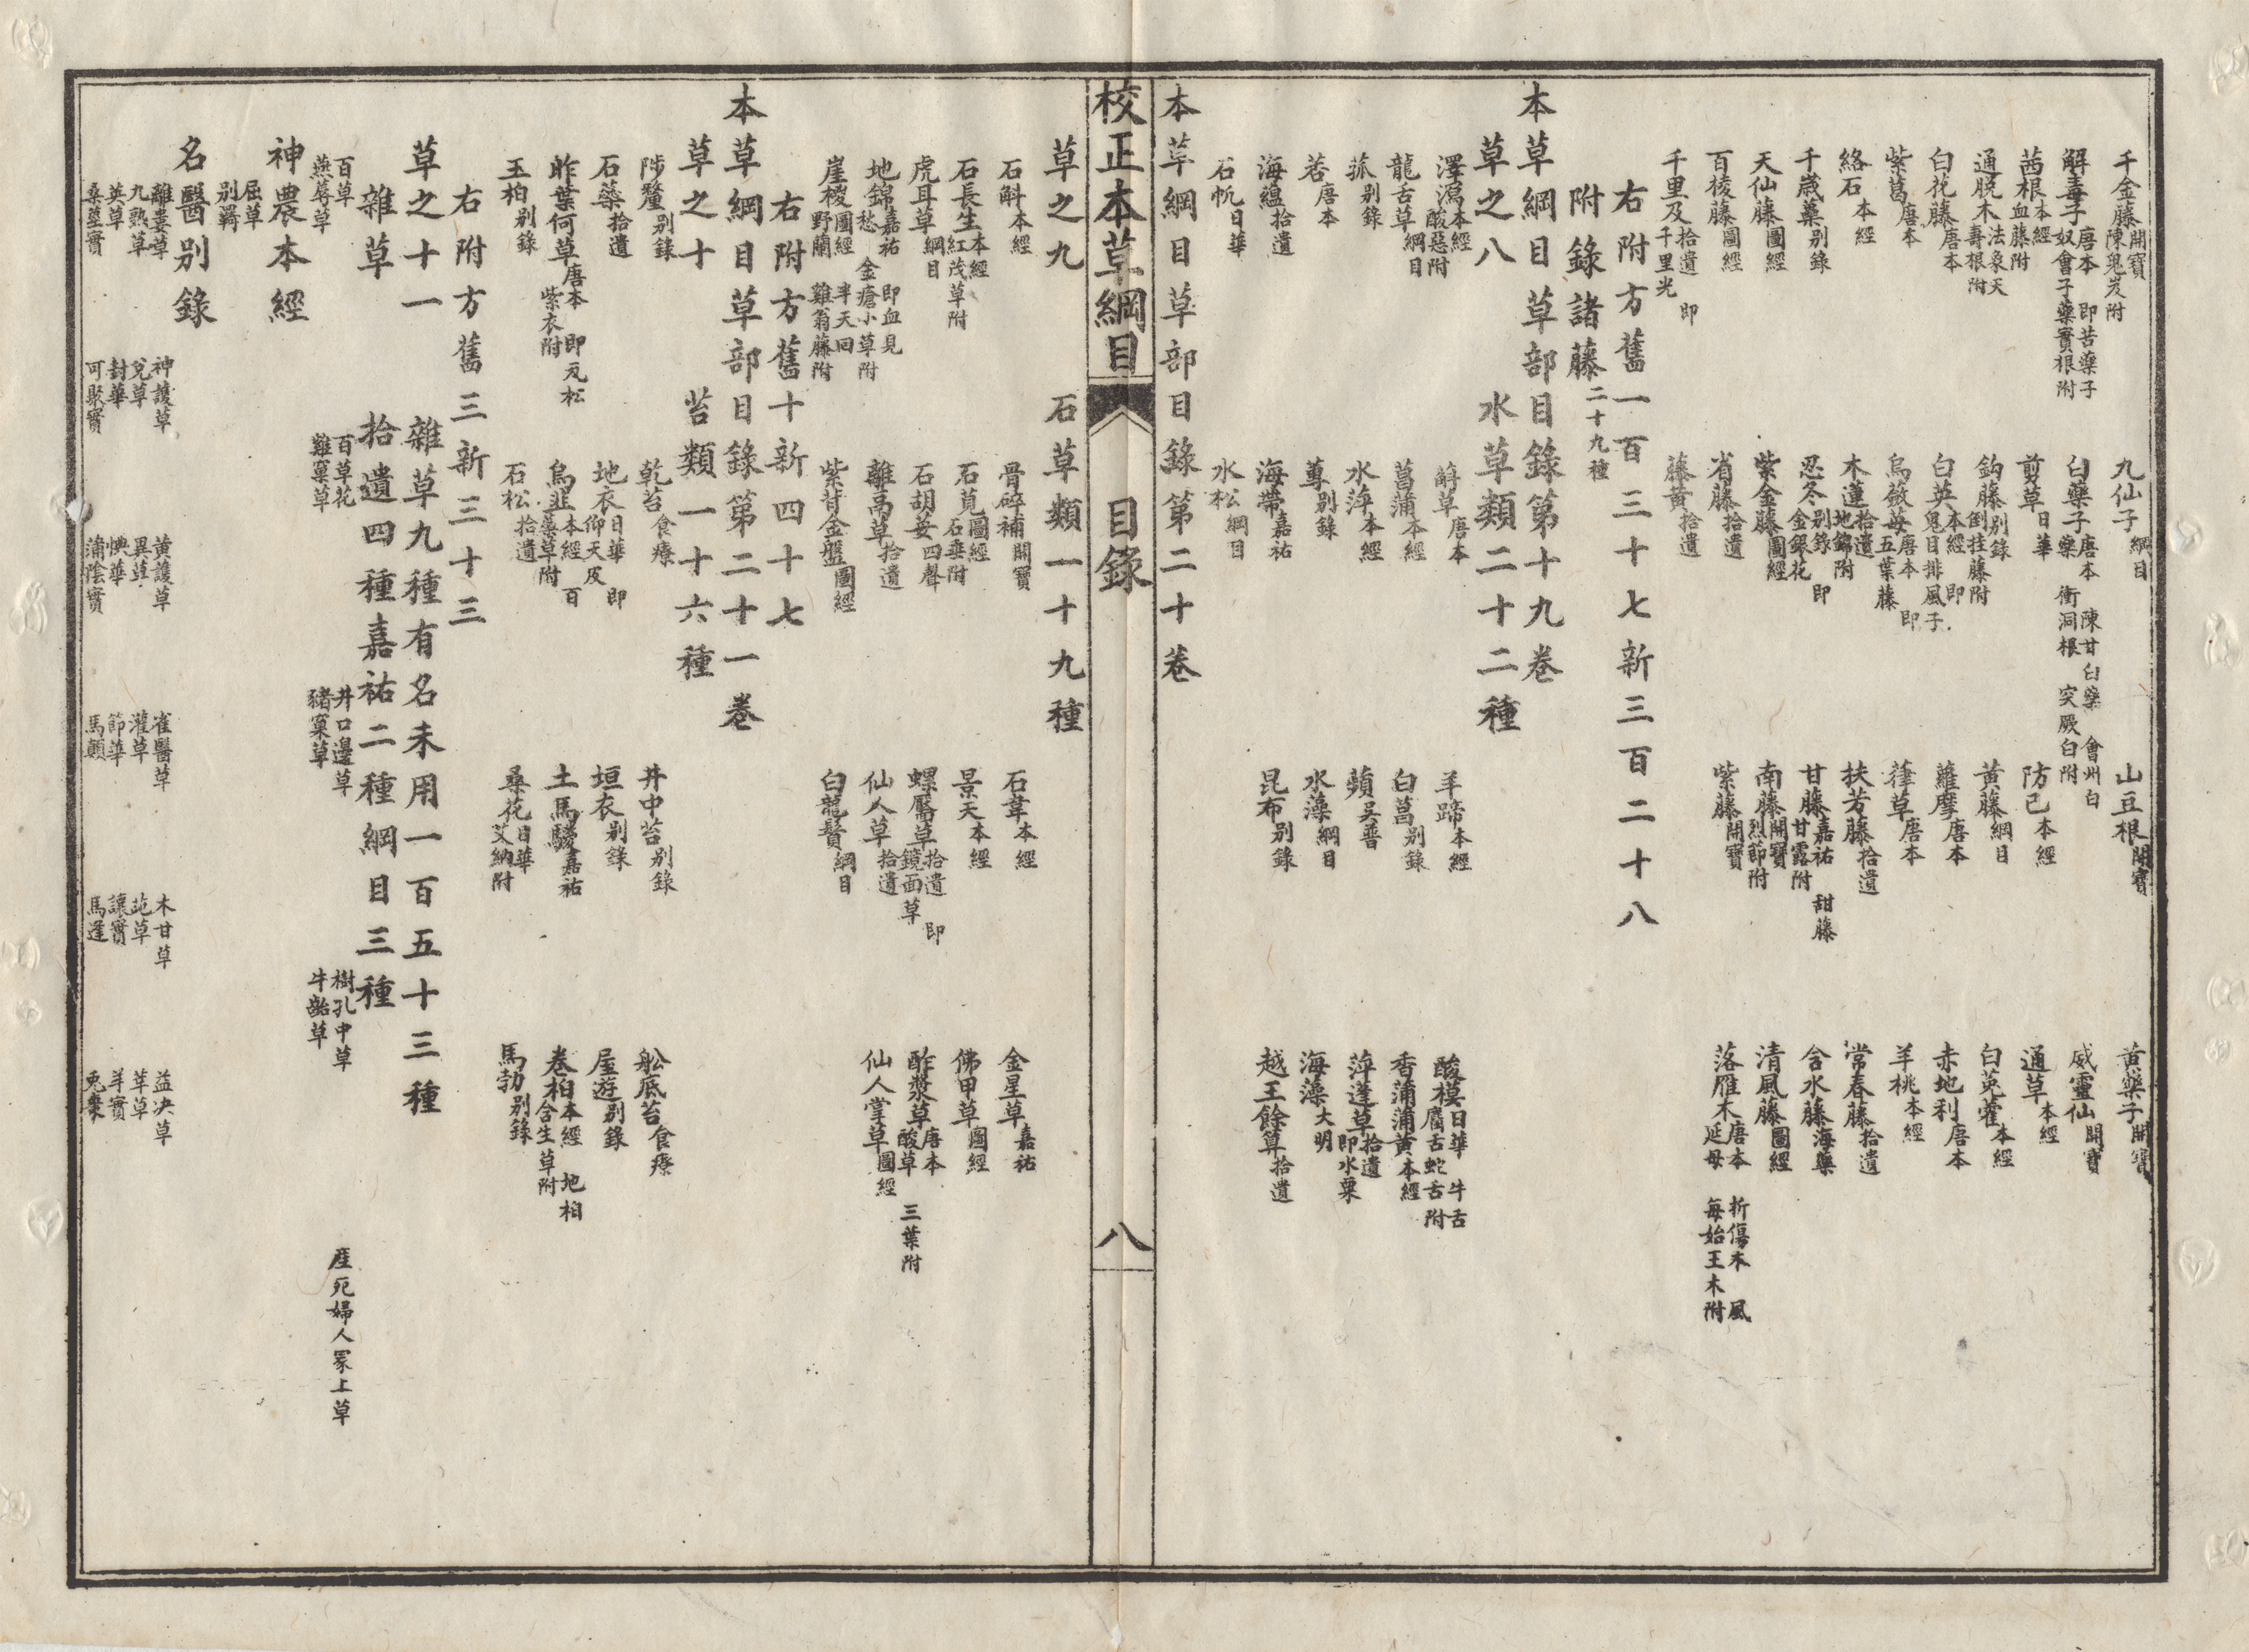 千金藤開寶陳思岌附　九仙子綱目　山豆根開寶　黃藥子開寶
解毒子唐本即苦藥子奴會子藥實根附　白藥子唐本陳甘白藥會州白藥衝洞根突厥白附　威靈仙開寶
茜根本經血藤附　剪草日華　防己本經　通草本經
通脫木法象天壽根附　鈎藤別錄倒挂藤附　黃藤綱目　白兎藿本經
白花藤唐本　白英本經即鬼目排風子　蘿摩唐本　赤地利唐本
紫葛唐本　烏蘞莓唐本即五葉藤　葎草唐本　羊桃本經
絡石本經　木蓮拾遺地錦附　扶芳藤拾遺　常春藤拾遺
千歲蘽別錄　忍冬別錄即金銀花　甘藤嘉祐甜藤甘露附　含水藤海藥
天仙藤圖經　紫金藤圖經　南藤開寶烈節附　清風藤圖經
百棱藤圖經　省藤拾遺　紫藤開寶　落雁木唐本折傷木風延母每始王木附
千里及拾遺即千里光　藤黃拾遺
右附方舊一百三十七新三百二十八
附錄諸藤二十九種
本草綱目草部目錄第十九卷
草之八　水草類二十二種
澤瀉本經酸惡附　蔛草唐本　羊蹄本經　酸模日華牛舌腐舌蛇舌附
龍舌草綱目　菖蒲本經　白菖別錄　香蒲蒲黃本經
菰別錄　水萍本經　蘋吳普　萍蓬草拾遺即水粟
苦唐本　蓴別錄　水藻綱目　海藻大明
海蘊拾遺　海帶嘉祐　昆布別錄　越王餘算拾遺
石帆日華　水松綱目
本草綱目草部目錄第二十卷
校正本草綱目　目錄　八
草之九　石草類一十九種
石斛本經　骨碎補開寶　石韋本經　金星草嘉祐
石長生本經紅茂草附　石莧圖經石垂附　景天本經　佛甲草圖經
虎耳草綱目　石胡荽四聲　螺厴草拾遺即鏡面草　酢漿草唐本酸草三葉附
地錦嘉祐即血見愁金瘡小草附　離鬲草拾遺　仙人草拾遺　仙人掌草圖經
崖椶圖經半天回野蘭雞翁藤附　紫背金盤圖經　白龍鬚綱目
右附方舊十新四十七
本草綱目草部目錄第二十一卷
草之十　苔類一十六種
陟釐別錄　乾苔食療　井中苔別錄　船底苔食療
石蘂拾遺　地衣日華即仰天皮　垣衣別錄　屋遊別錄
昨葉何草唐本即瓦松紫衣附　烏韭本經百蘂草附　土馬騣嘉祐　卷柏本經地柏含生草附
玉柏別錄　石松拾遺　桑花日華艾納附　馬勃別錄
右附方舊三新三十三
草之十一　雜草九種有名未用一百五十三種
雜草　拾遺四種嘉祐二種綱目三種
百草　百草花　井口邊草　樹孔中草　產死婦人冢上草
燕蓐草　雞窠草　豬窠草　牛齝草
神農本經
屈草
別羈
名醫別錄
離婁草　神護草　黃護草　雀醫草　木甘草　益決草
九熟草　兌草　異草　灌草　茈草　莘草
英草　封華　㮂華　節華　讓實　羊實
桑莖實　可聚實　蒲陰實　馬顛　馬逢　兎棗